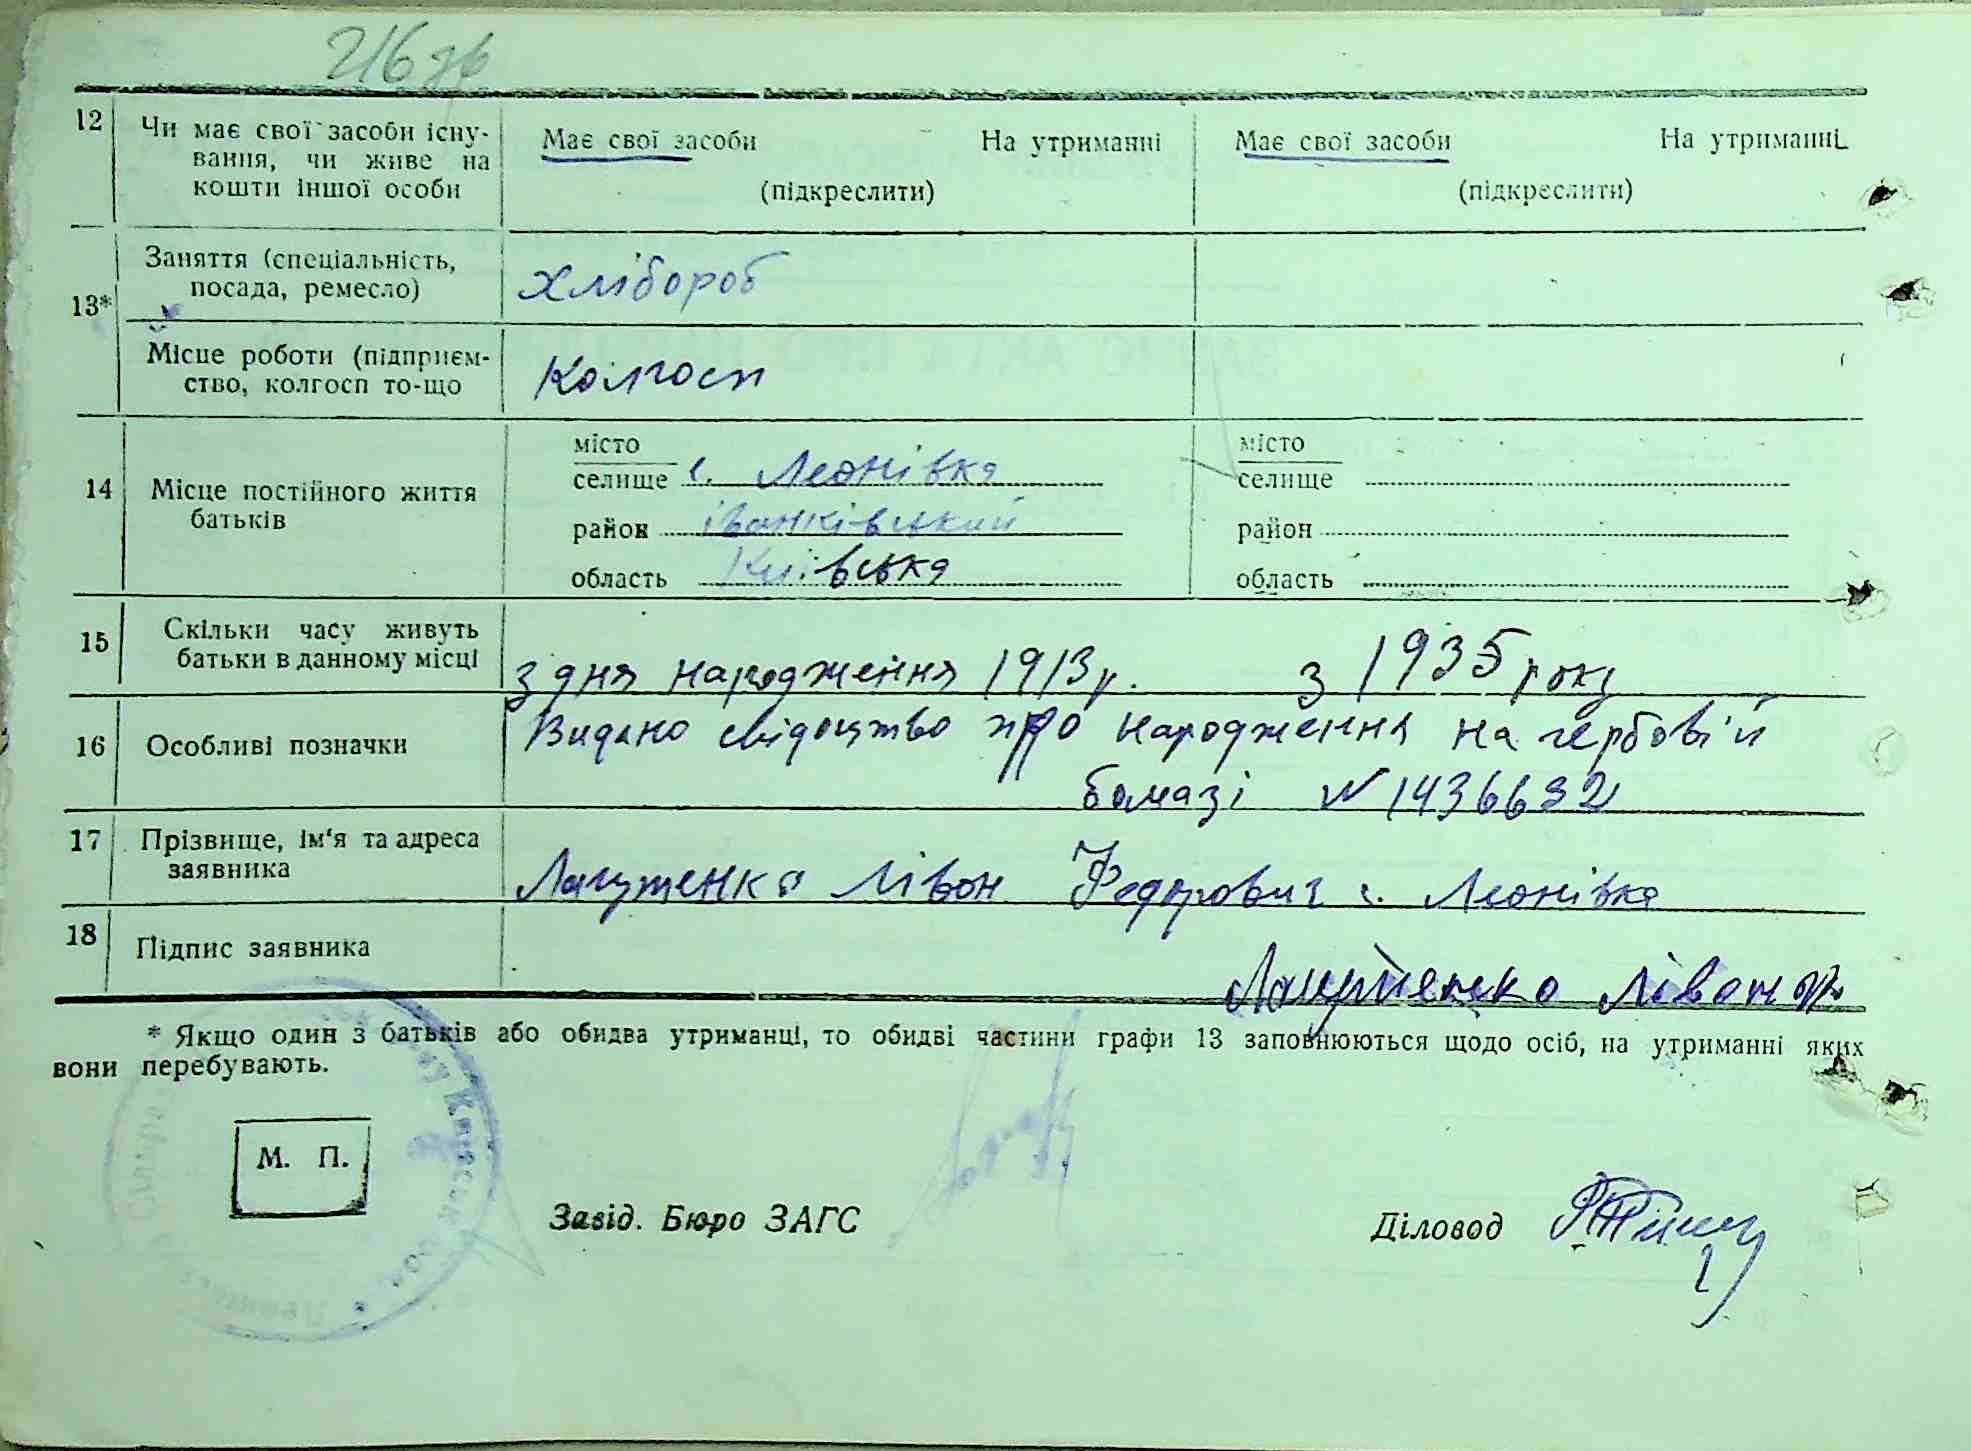 216 зв
12 Чи має свої засоби існу-
вання, чи живе на
кошти іншої особи
Має свої засоби На утриманні
(підкреслити)
Має свої засоби На утриманні
(підкреслити)
13* Заняття (спеціальність,
посада, ремесло)
Хлібороб
Місце роботи (підприєм-
ство, колгосп то-що
Колгосп
14 Місце постійного життя
батьків
місто
селище с. Леонівка
район іванківський
область Київська
місто
селище
район
область
15 Скільки часу живуть
батьки в данному місці
з дня народження 1913 р. з 1935 року
16 Особливі позначки
Видано свідоцтво про народження на гербовій
бомазі N 1436632
17 Прізвище, ім'я та адреса
заявника
Лагуженко Лівон Федорович с. Леонівка
18 Підпис заявника
Лівон
* Якщо один з батьків або обидва утриманці, то обидві частини графи 13 заповнюються щодо осіб, на утриманні яких
вони перебувають.
М. П.
Завід. Бюро ЗАГС
Діловод